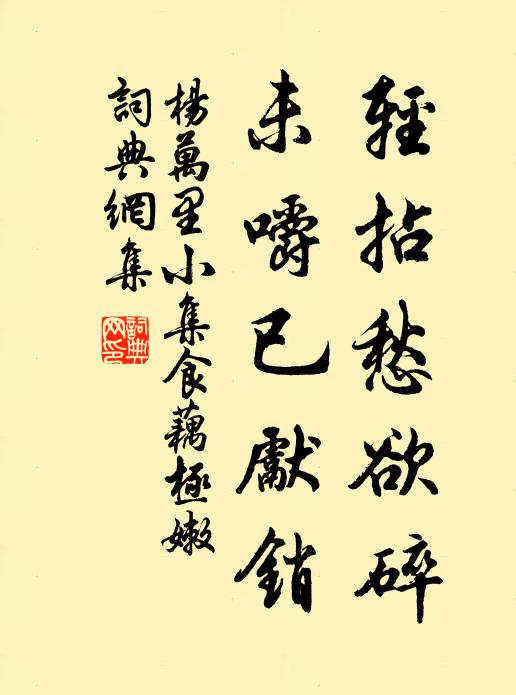 輕拈愁欲碎
未嚼已獻銷
楊萬里小集食藕極嫩
詞典網集
詞典
网印